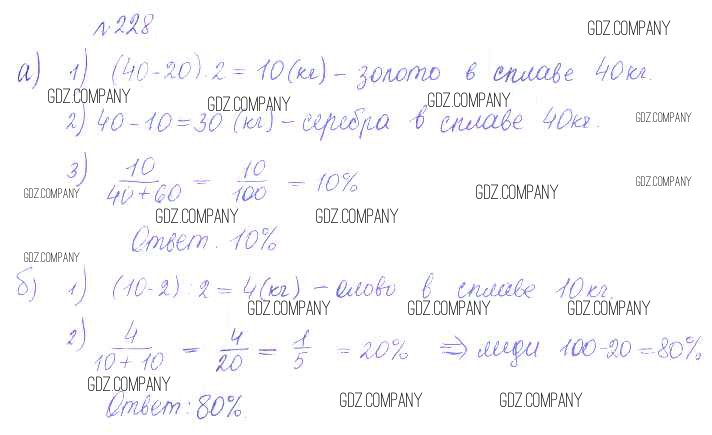 №228
GDZ.COMPANY
а) 1) (40-20).2 = 10(кг) - золото в сплаве 40кг.
GDZ.COMPANY GDZ.COMPANY GDZ.COMPANY
2) 40-10=30 (кг) - серебра в сплаве 40кг.
GDZ.COMPANY
3) 10/(40+60) = 10/100 = 10%
GDZ.COMPANY GDZ.COMPANY GDZ.COMPANY
GDZ.COMPANY GDZ.COMPANY
Ответ. 10%
GDZ.COMPANY
б) 1) (10-2):2=4(кг) - олово в сплаве 10кг.
GDZ.COMPANY GDZ.COMPANY GDZ.COMPANY
2) 4/(10+10) = 4/20 = 1/5 = 20% => меди 100-20=80%
GDZ.COMPANY
Ответ: 80%.
GDZ.COMPANY GDZ.COMPANY